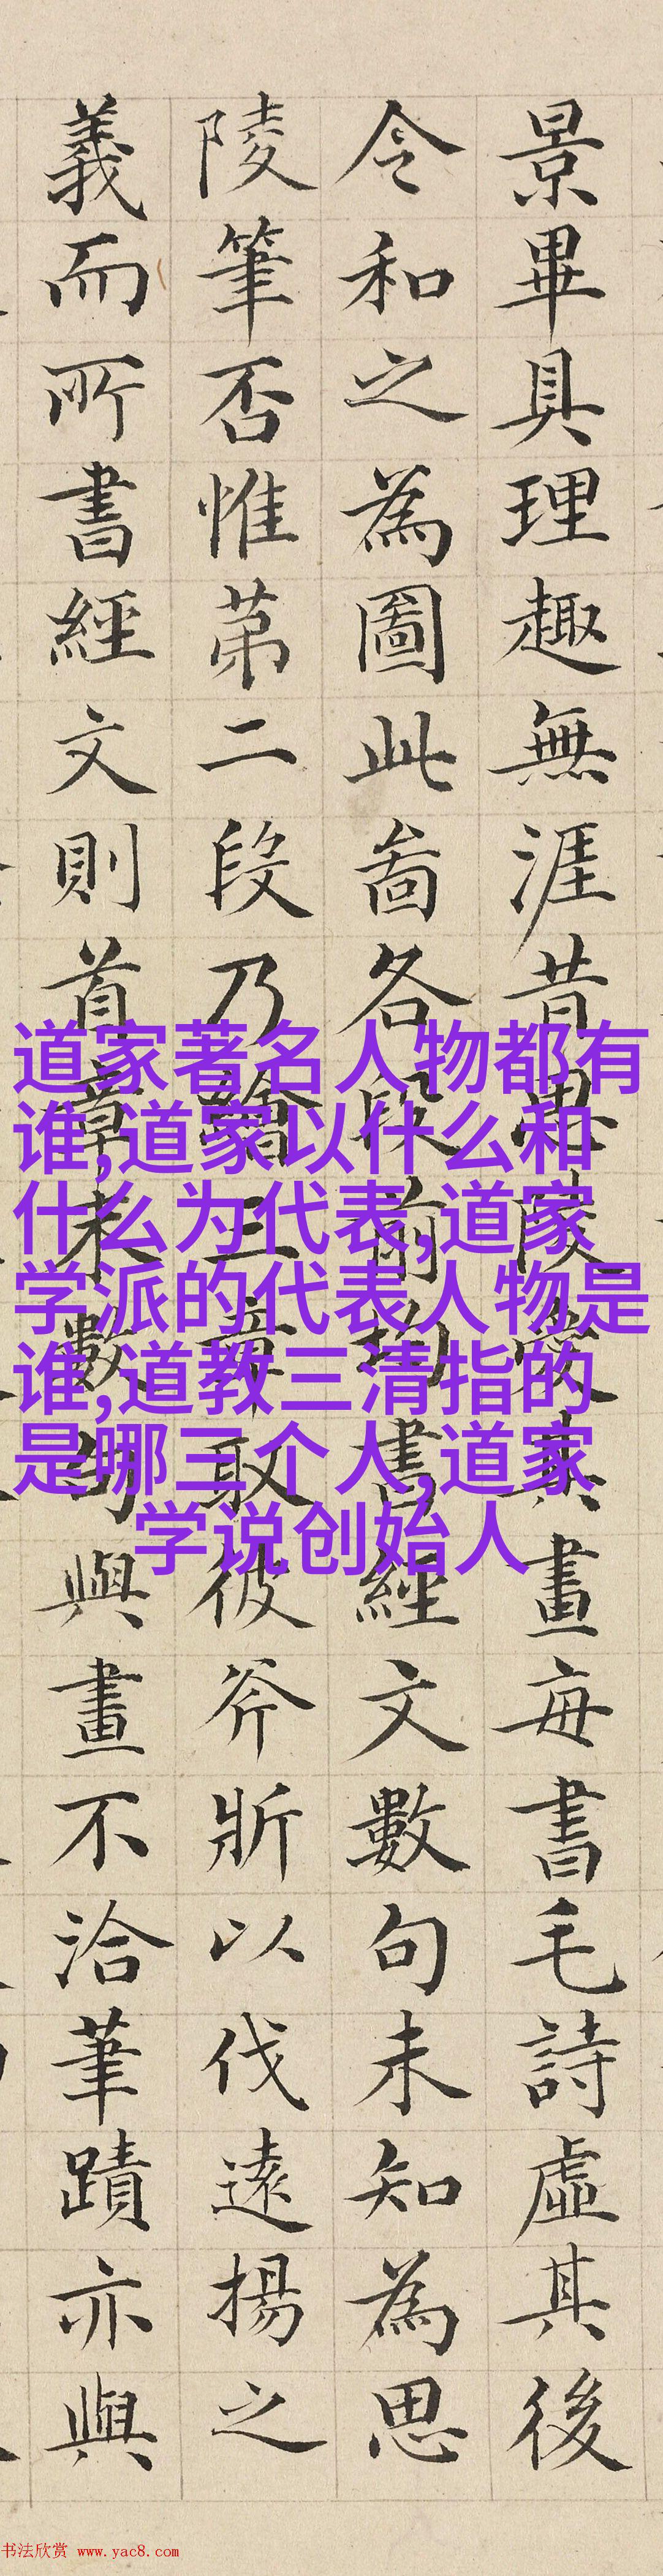 景畢具理趣無涯昔思陵愛其畫每書毛詩虛其後
令和之為圖此啚各段前均書經文數句未知為思
陵筆否惟苐二段乃繪三章取彼斧斨以伐遠揚之
義而所書經文則首章末數句與畫不洽筆蹟亦與
道家著名人物都有
谁,道家以什么和
什么为代表,道家
学派的代表人物是
谁,道教三清指的
是哪三个人,道家
学说创始人
书法欣赏 www.yac8.com